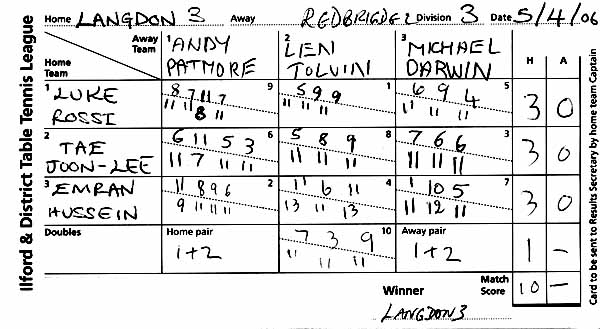 Ilford & District Table Tennis League
Home LANGDON 3 Away REDBRIDGE 2 Division 3 Date 5/4/06
Home Team Away Team 1 ANDY PATMORE 2 LIEN TOLVIN 3 MICHAEL DARWIN H A
1 LUKE ROSSI 9 1 5 3 0
8 7 11 7 5 9 9 6 9 4
11 11 8 11 11 11 11 11 11 11
2 TAE JOON-LEE 6 8 3 3 0
6 11 5 3 5 8 9 7 6 6
11 7 11 11 11 11 11 11 11 11
3 EMRAN HUSSEIN 2 4 7 3 0
11 8 9 6 11 6 11 1 10 5
9 11 11 11 13 11 13 11 12 11
Doubles Home pair 1+2 10 Away pair 1+2 1 -
7 3 9
11 11 11
Winner LANGDON 3 Match Score 10 -
Card to be sent to Results Secretary by home team Captain